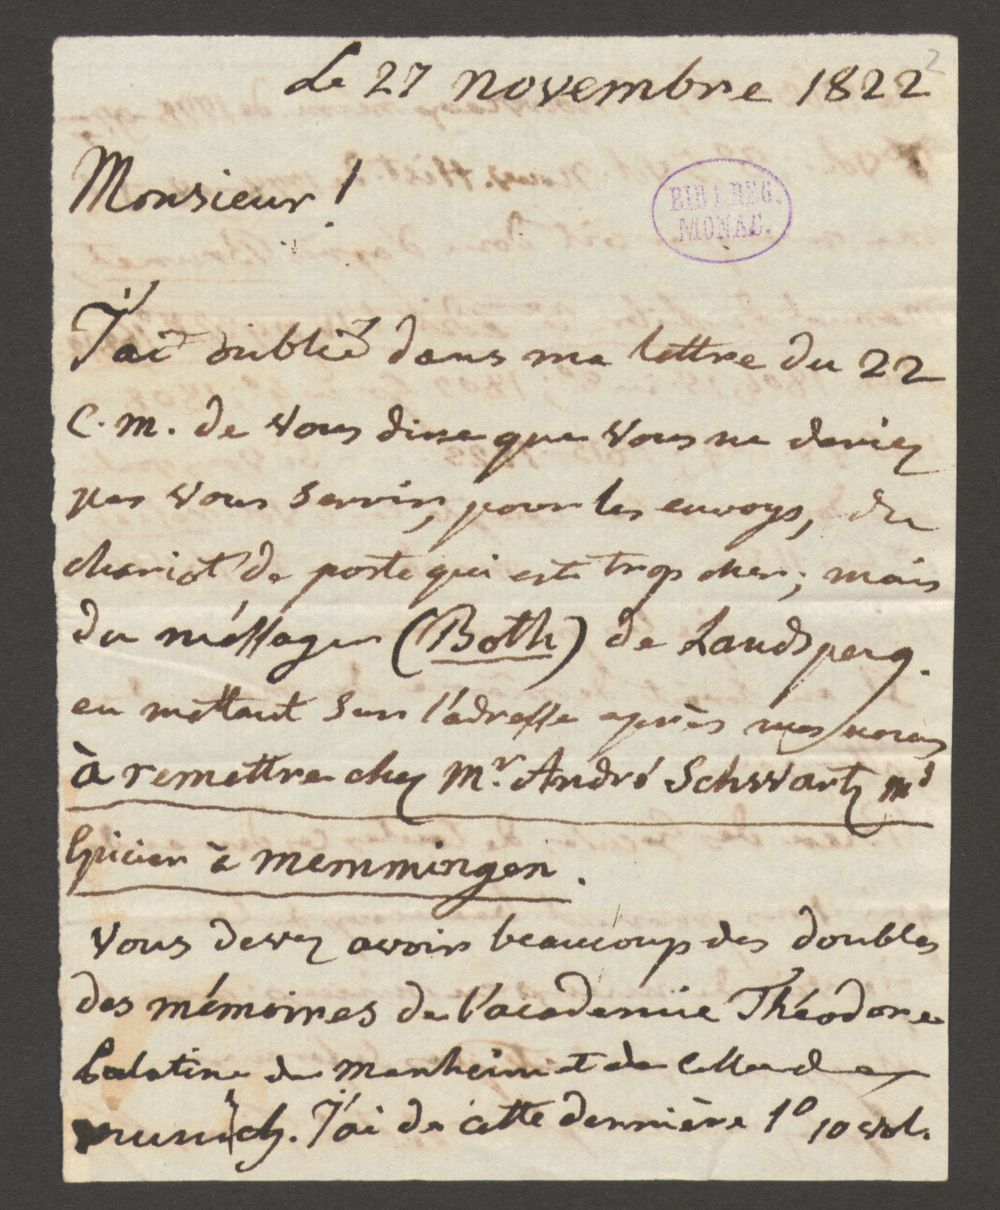 2
Le 27 novembre 1822
Monsieur!
BIBL. REG.
MONAC.
J'ai oublié dans ma lettre du 22
C. m. de vous dire que vous ne deviez
pas vous servir, pour les envoys, du
chariot de poste qui est trop cher; mais
du méssager (Both) de Landsperg.
en mettant sur l'adresse après mes noms
à remettre chez Mr. André Schwartz md
Epicier à memmingen.
Vous devez avoir beaucoup des doubles
des mémoires de l'academie Théodore
Palatine de Manheim et de celle de
munich. J'ai de cette dernière 1º 10 vol.